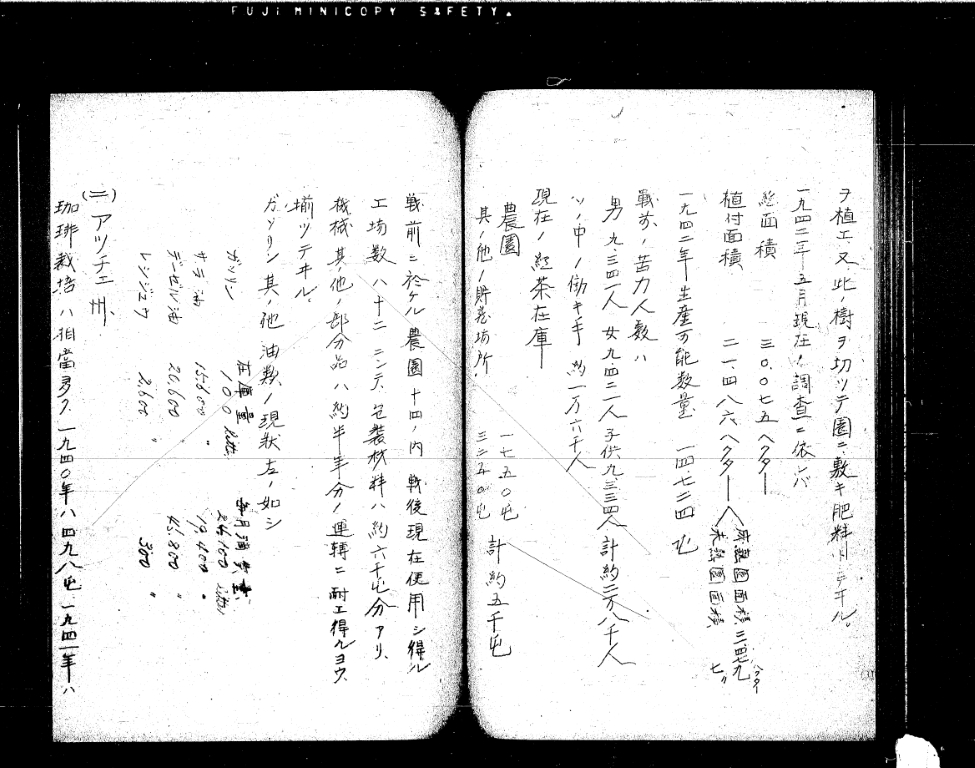 FUJI MINICOPY SAFETY.
ヲ植エ又此ノ樹ヲ切ツテ園ニ敷キ肥料トシテヰル。
一九四二年五月現在ノ調査ニ依レバ
総面積 三〇.〇七五ヘクター
植付面積 二一.四八六ヘクター
成熟園面積
未熟園面積
一九四二年生産可能数量 一四.七二四屯
戦前ノ苦力人数ハ
男 九.三四一人 女九.四二二人 子供九.三三四人 計約二万八千人
ソノ中ノ働キ手 約一万六千人
現在ノ紅茶在庫
農園 一七五〇屯
其ノ他ノ貯蔵場所 三三五〇屯
計約五千屯
戦前ニ於ケル農園十四ノ内 戦後現在使用シ得ル
工場数ハ十二ニシテ、包装材料ハ約六千屯分アリ、
機械其ノ他ノ部分品ハ約半年分ノ運転ニ耐エ得ルヨウ
揃ツテヰル。
ガソリン其ノ他油類ノ現状左ノ如シ
在庫量 毎月消費量
ガソリン 100 litr. 24,100 litr.
サラ油 15,600 〃 19,400 〃
デーゼル油 26,600 〃 45,800 〃
レンジュウ 2,600 〃 300 〃
(二) アツチエ州、
珈琲栽培ハ相当多ク一九四〇年ハ四九八屯一九四一年ハ